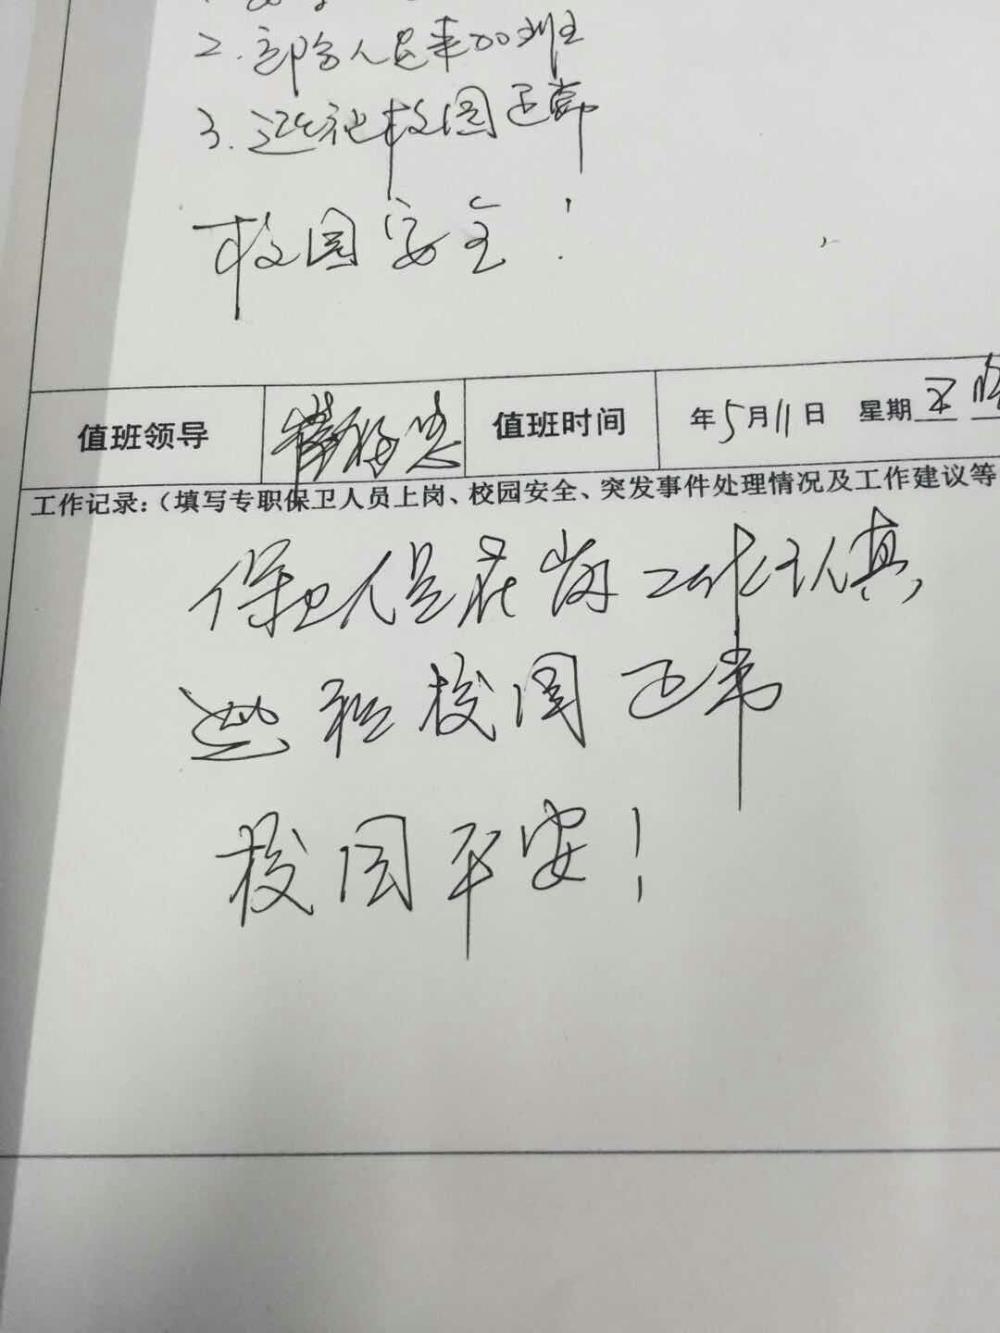 2.部分人员来加班
3.巡视校园正常
校园安全!
值班领导 值班时间 年5月11日 星期五
工作记录:(填写专职保卫人员上岗、校园安全、突发事件处理情况及工作建议等
保卫人员在岗工作认真,
巡视校园正常
校园平安!